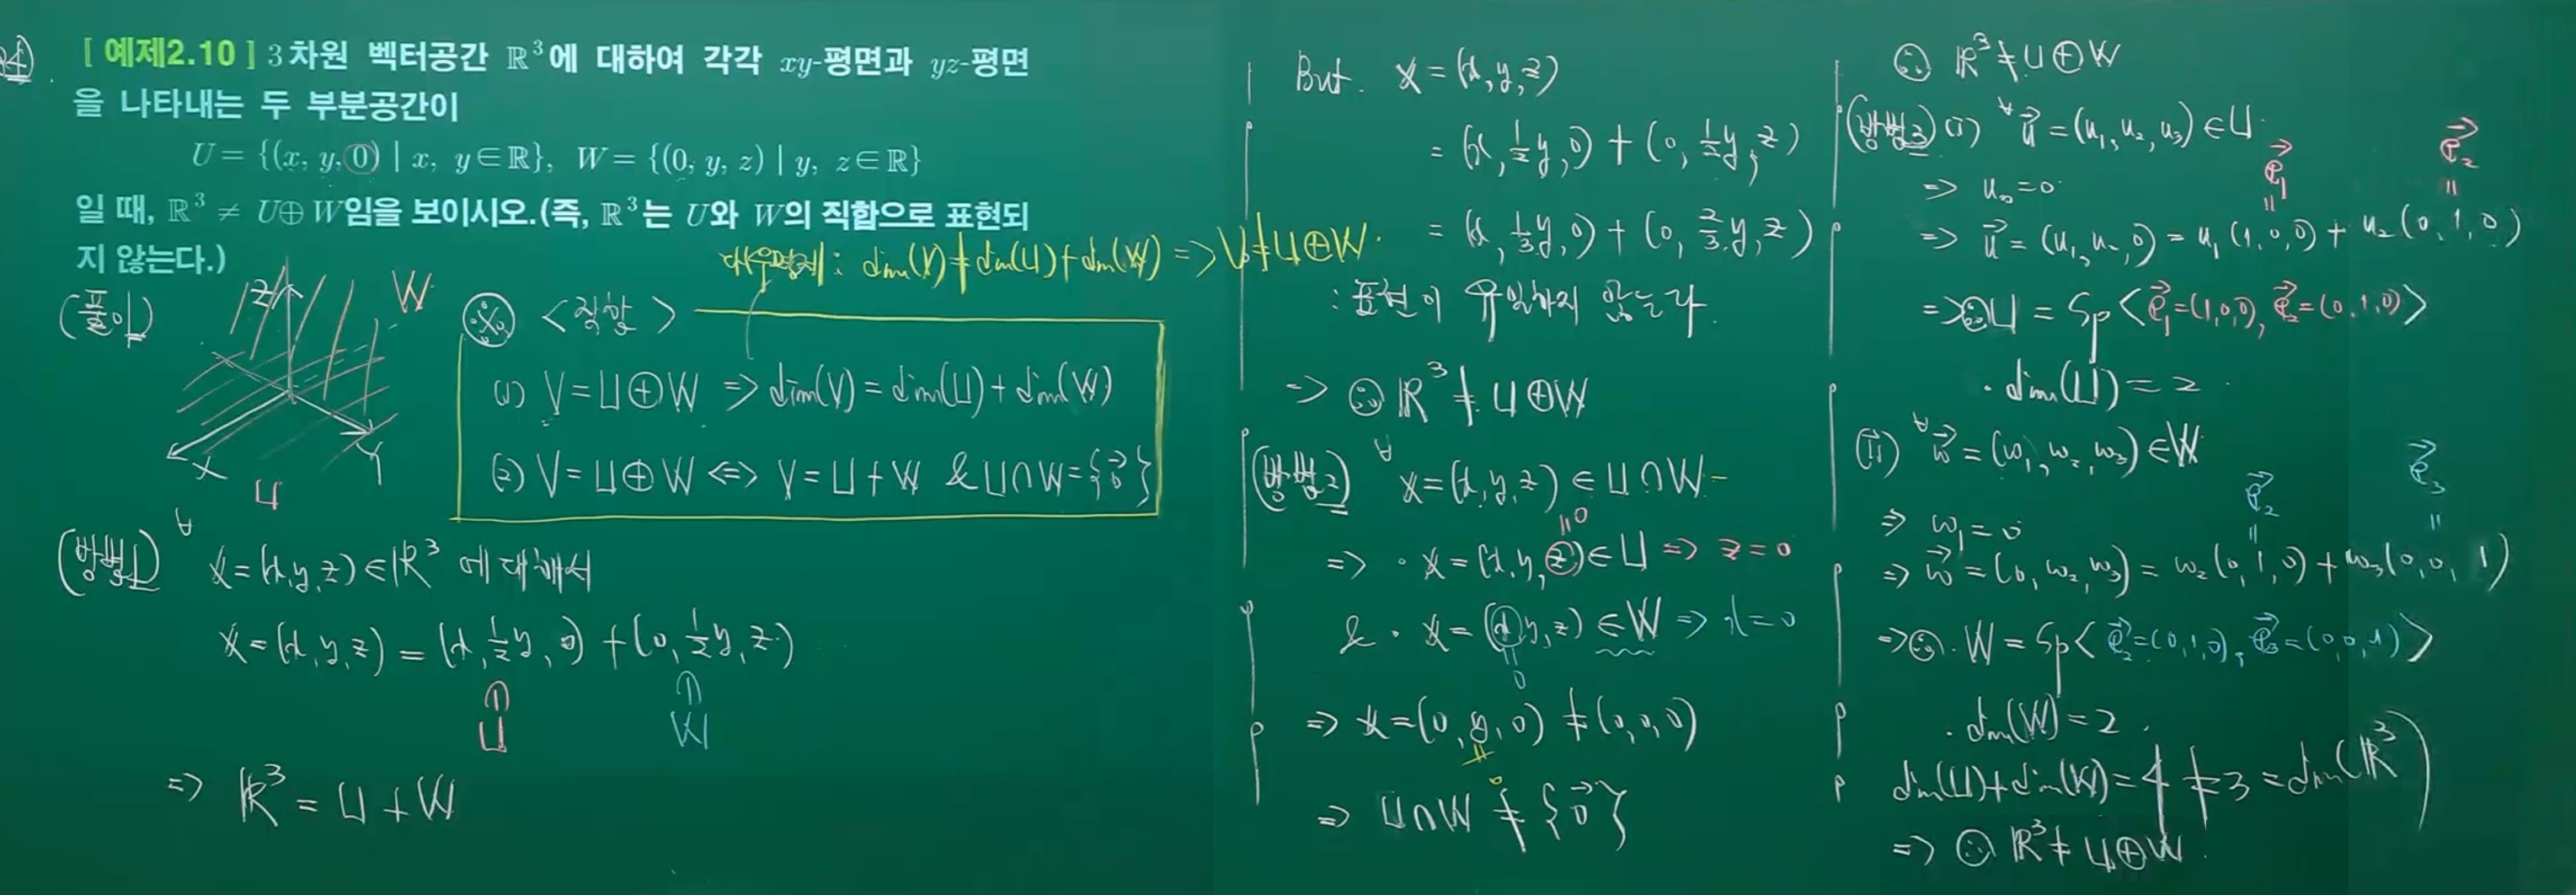 [ 예제2.10 ] 3차원 벡터공간 ℝ³에 대하여 각각 xy-평면과 yz-평면
을 나타내는 두 부분공간이
U = {(x, y, 0) | x, y∈ℝ}, W = {(0, y, z) | y, z∈ℝ}
일 때, ℝ³ ≠ U⊕W임을 보이시오.(즉, ℝ³는 U와 W의 직합으로 표현되
지 않는다.)
대우명제: dim(V)≠dim(U)+dim(W) => V≠U⊕W.
(풀이)
Z
W
X
Y
U
※ <직합>
(1) V=U⊕W => dim(V)=dim(U)+dim(W)
(2) V=U⊕W <=> V=U+W & U∩W={0⃗}
(방법1) ∀x=(x,y,z)∈ℝ³에 대해서
x=(x,y,z)=(x,½y,0)+(0,½y,z)
U W
=> ℝ³=U+W
But. x=(x,y,z)
=(x,½y,0)+(0,½y,z)
=(x,⅓y,0)+(0,⅔y,z)
: 표현이 유일하지 않는다.
=> ∴ ℝ³≠U⊕W
(방법2) ∀x=(x,y,z)∈U∩W
=> · x=(x,y,z)∈U => z=0
& · x=(x,y,z)∈W => x=0
=> x=(0,y,0)≠(0,0,0)
=> U∩W≠{0⃗}
∴ ℝ³≠U⊕W
(방법3) (i) ∀u⃗=(u₁,u₂,u₃)∈U
=> u₃=0
e⃗₁ e⃗₂
=> u⃗=(u₁,u₂,0)=u₁(1,0,0)+u₂(0,1,0)
=> ∴ U=Sp<e⃗₁=(1,0,0), e⃗₂=(0,1,0)>
· dim(U)=2
(ii) ∀w⃗=(w₁,w₂,w₃)∈W
=> w₁=0
e⃗₂ e⃗₃
=> w⃗=(0,w₂,w₃)=w₂(0,1,0)+w₃(0,0,1)
=> ∴ W=Sp<e⃗₂=(0,1,0), e⃗₃=(0,0,1)>
· dim(W)=2
dim(U)+dim(W)=4≠3=dim(ℝ³)
=> ∴ ℝ³≠U⊕W